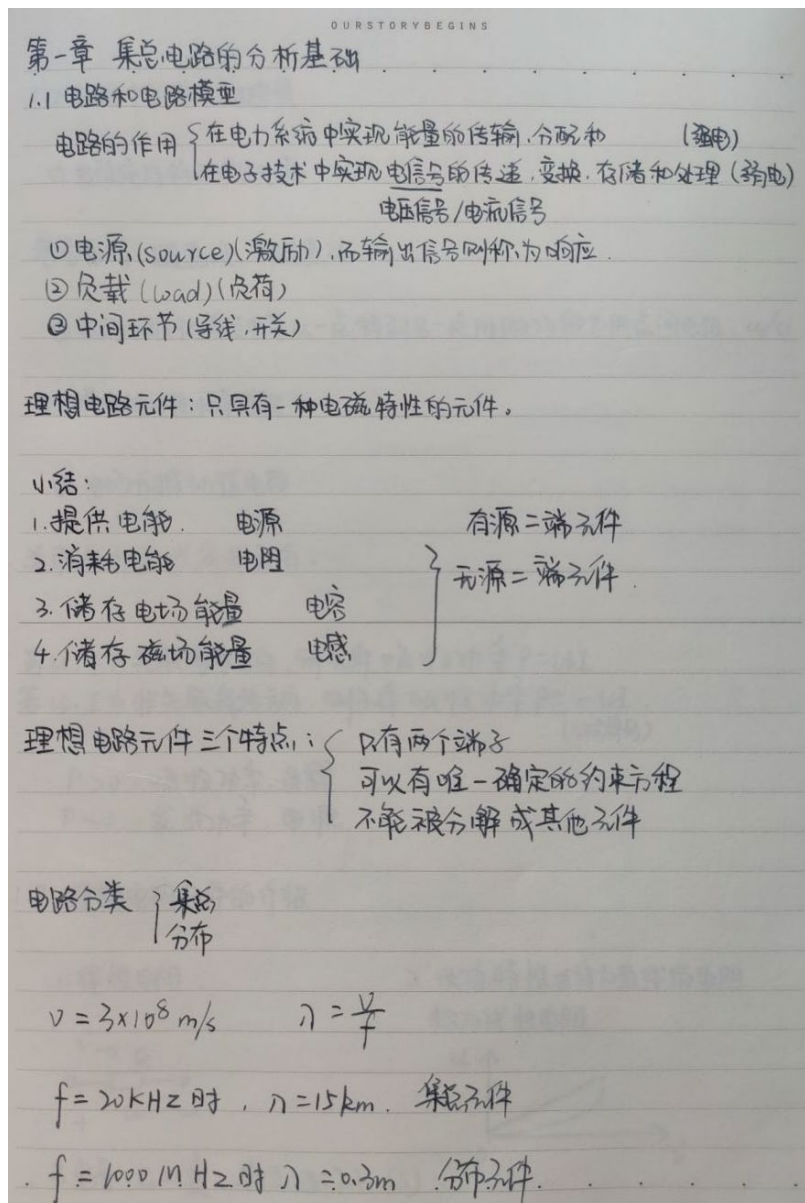 OURSTORYBEGINS
第一章 集总电路的分析基础
1.1 电路和电路模型
电路的作用 { 在电力系统中实现能量的传输、分配和 (强电)
在电子技术中实现电信号的传递、变换、存储和处理 (弱电)
电压信号/电流信号
① 电源 (source)(激励),而输出信号则称为响应.
② 负载 (load)(负荷)
③ 中间环节 (导线、开关)
理想电路元件:只具有一种电磁特性的元件。
小结:
1. 提供电能. 电源 有源二端元件
2. 消耗电能 电阻 } 无源二端元件.
3. 储存电场能量 电容
4. 储存磁场能量 电感
理想电路元件三个特点: { 只有两个端子
可以有唯一确定的约束方程
不能被分解成其他元件
电路分类 { 集总
分布
v = 3×10⁸ m/s λ = v/f
f = 20KHz 时, λ = 15km. 集总元件
f = 1000MHz 时 λ = 0.3m 分布元件.